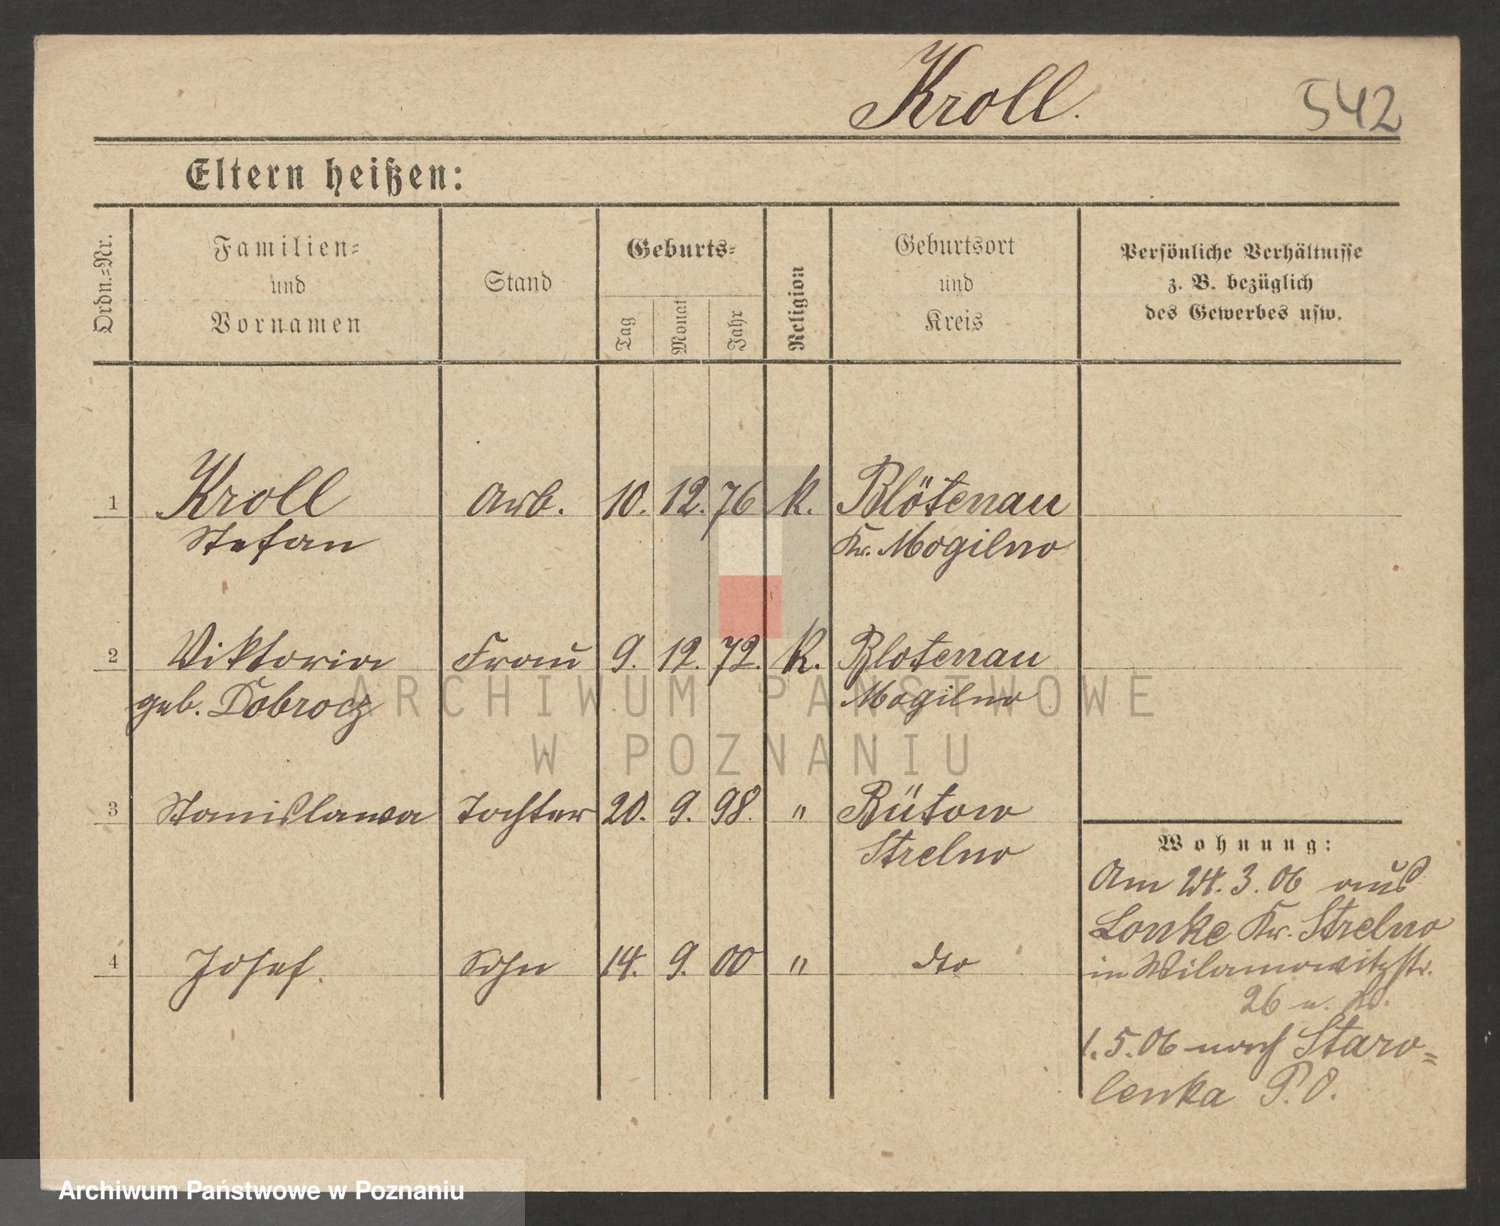 Kroll.
542
Eltern heißen:
Ordn.-Nr.
Familien-
und
Vornamen
Stand
Geburts-
Tag
Monat
Jahr
Religion
Geburtsort
und
Kreis
Persönliche Verhältnisse
z. B. bezüglich
des Gewerbes usw.
1 Kroll Arb. 10. 12. 76 K. Blötenau
Stefan Kr. Mogilno
2 Viktoria Frau 9. 12. 72. K. Blotenau
geb. Dobrocz Mogilno
3 Stanislawa Tochter 20. 9. 98. " Bütow
Strelno
4 Josef. Sohn 14. 9. 00 " dto
Wohnung:
Am 24.3.06 aus
Lonke Kr. Strelno
in Wilamowitzstr.
26 u.
1.5.06 nach Staro-
lenka P.O.
ARCHIWUM PAŃSTWOWE
W POZNANIU
Archiwum Państwowe w Poznaniu